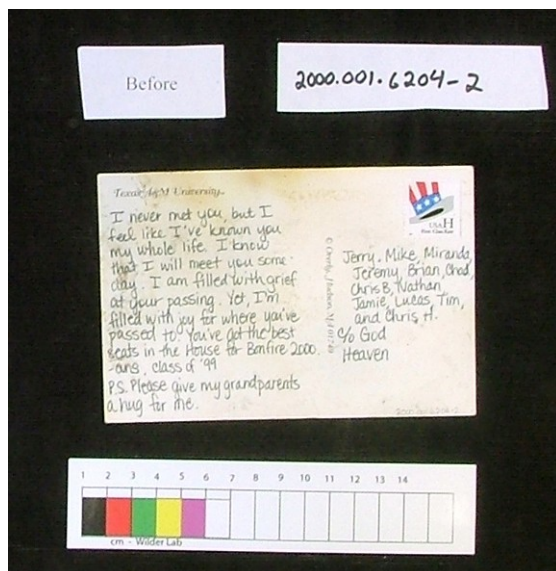 Before
2000.001.6204-2
Texas A&M University
I never met you, but I
feel like I've known you
my whole life. I know
that I will meet you some-
day. I am filled with grief
at your passing. Yet, I'm
filled with joy for where you've
passed to. You've got the best
seats in the House for Bonfire 2000.
-ans, class of '99
P.S. Please give my grandparents
a hug for me.
USA H
First-Class Rate
Jerry, Mike, Miranda,
Jeremy, Brian, Chad,
Chris B, Nathan,
Jamie, Lucas, Tim,
and Chris H.
c/o God
Heaven
© Overly, Hudson, MA 01749
1 2 3 4 5 6 7 8 9 10 11 12 13 14
cm - Wilder Lab